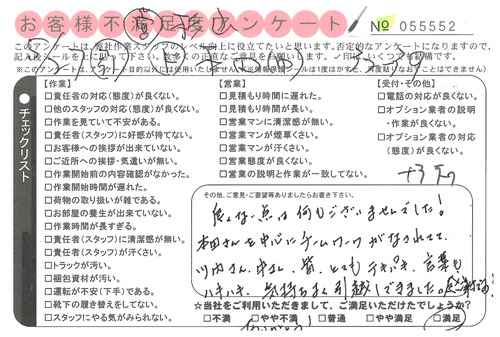 お客様不満足度アンケート
№ 055552
このアンケートは、弊社作業スタッフのレベル向上に役立てたいと思います。否定的なアンケートになりますので、
※このアンケートは、アンケート目的以外には使用いたしません
チェックリスト
【作業】
□責任者の対応(態度)が良くない。
□他のスタッフの対応(態度)が良くない。
□作業を見ていて不安がある。
□責任者(スタッフ)に好感が持てない。
□お客様への挨拶が出来ていない。
□ご近所への挨拶・気遣いが無い。
□作業開始前の内容確認がなかった。
□作業開始時間が遅れた。
□荷物の取り扱いが雑である。
□お部屋の養生が出来ていない。
□作業時間が長すぎる。
□責任者(スタッフ)に清潔感が無い。
□責任者(スタッフ)が汗くさい。
□トラックが汚い。
□梱包資材が汚い。
□運転が不安(下手)である。
□靴下の履き替えをしてない。
□スタッフにやる気がみられない。
【営業】
□見積もり時間に遅れた。
□見積もり時間が長い。
□営業マンに清潔感が無い。
□営業マンが煙草くさい。
□営業マンが汗くさい。
□営業態度が良くない。
□営業の説明と作業が一致してない。
【受付・その他】
□電話の対応が良くない。
□オプション業者の説明
・作業が良くない。
□オプション業者の対応
(態度)が良くない。
その他、ご意見・ご要望等ありましたらお書き下さい。
良くない点は何もございませんでした!
本田さんを中心にチームワークがなされてて
皆、とてもテキパキ、言葉も
ハキハキ、気持ちよく引越しできました。
☆当社をご利用いただきまして、ご満足いただけたでしょうか?
□不満 □やや不満 □普通 □やや満足 □満足